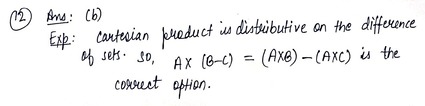 (12) Ans: (b)
Exp: Cartesian product is distributive on the difference
of sets. So, A× (B-C) = (A×B) - (A×C) is the
correct option.